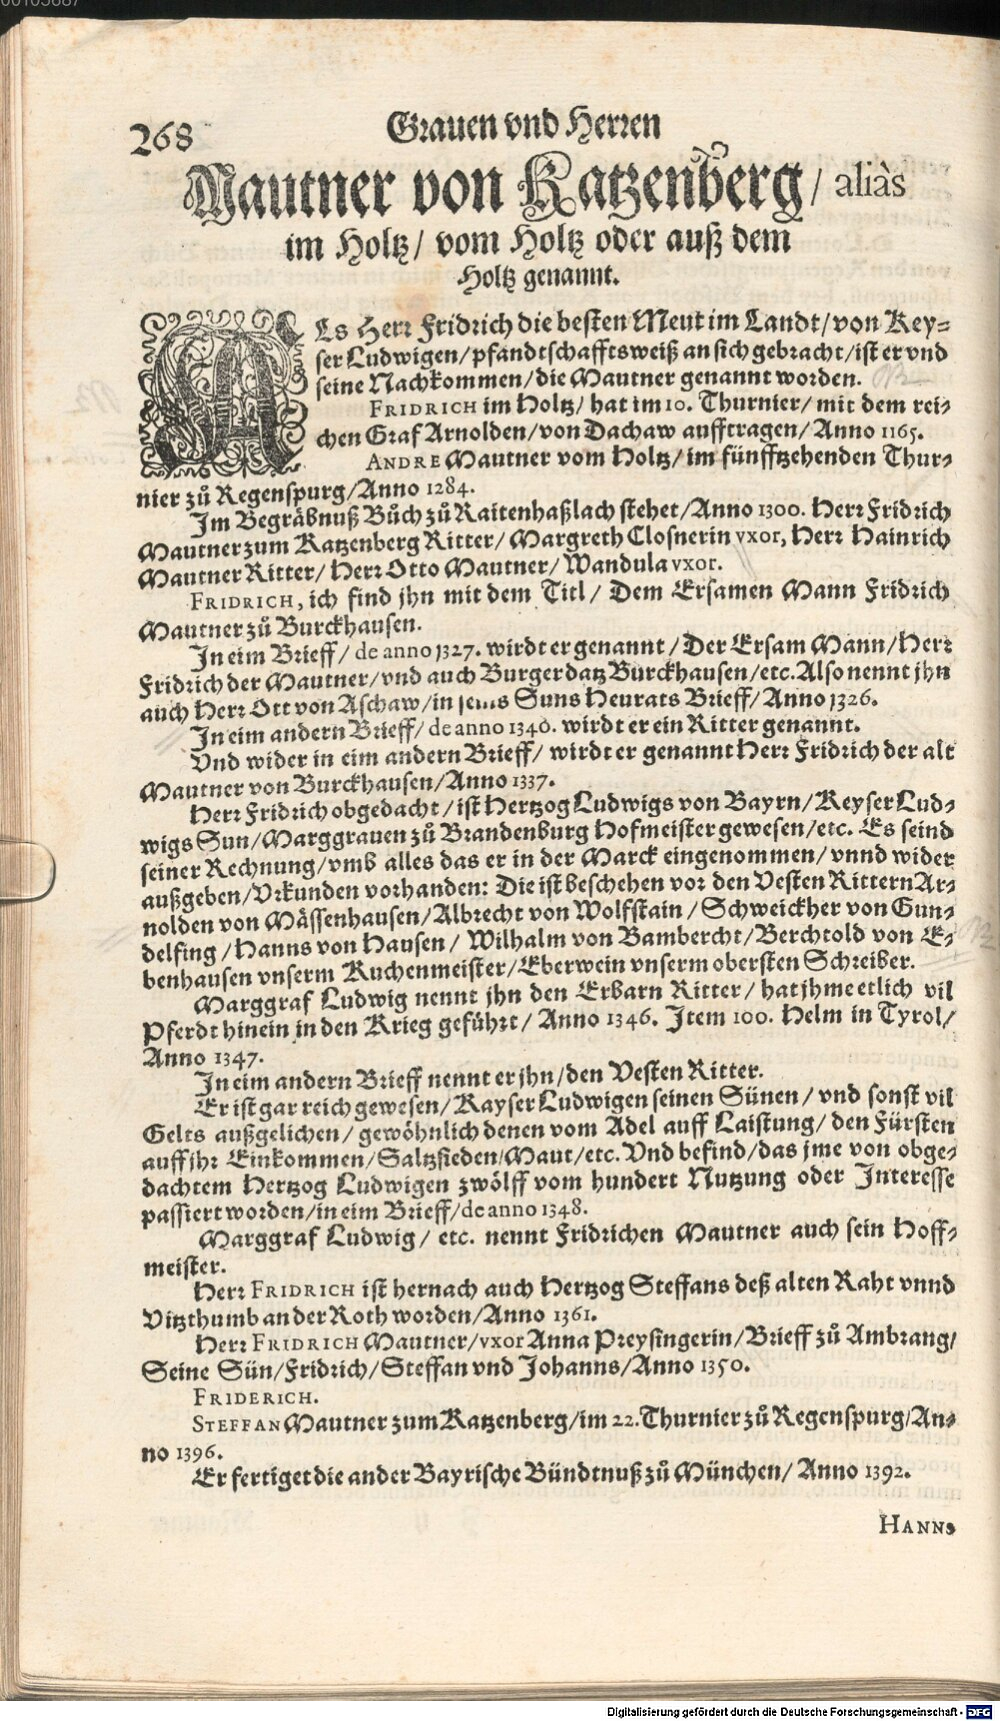 268
Grauen vnd Herren
Mautner von Katzenberg / aliàs
im Holtz / vom Holtz oder auß dem
Holtz genannt.
ALs Herr Fridrich die besten Meut im Landt / von Key-
ser Ludwigen / pfandtschafftsweiß an sich gebracht / ist er vnd
seine Nachkommen / die Mautner genannt worden.
FRIDRICH im Holtz / hat im 10. Thurnier / mit dem rei-
chen Graf Arnolden / von Dachaw aufftragen / Anno 1165.
ANDRE Mautner vom Holtz / im fünfftzehenden Thur-
nier zů Regenspurg / Anno 1284.
Im Begräbnuß Bůch zů Raitenhaßlach stehet / Anno 1300. Herr Fridrich
Mautner zum Katzenberg Ritter / Margreth Closnerin vxor, Herr Hainrich
Mautner Ritter / Herr Otto Mautner / Wandula vxor.
FRIDRICH, ich find jhn mit dem Titl / Dem Ersamen Mann Fridrich
Mautner zů Burckhausen.
In eim Brieff / de anno 1327. wirdt er genannt / Der Ersam Mann / Herr
Fridrich der Mautner / vnd auch Burger datz Burckhausen / etc. Also nennt jhn
auch Herr Ott von Aschaw / in Suns Heurats Brieff / Anno 1326.
In eim andern Brieff / de anno 1340. wirdt er ein Ritter genannt.
Vnd wider in eim andern Brieff / wirdt er genannt Herr Fridrich der alt
Mautner von Burckhausen / Anno 1337.
Herr Fridrich obgedacht / ist Hertzog Ludwigs von Bayrn / Keyser Lud-
wigs Sun / Marggrauen zů Brandenburg Hofmeister gewesen / etc. Es seind
seiner Rechnung / vmb alles das er in der Marck eingenommen / vnnd wider
außgeben / Vrkunden vorhanden: Die ist beschehen vor den Vesten Rittern Ar-
nolden von Mässenhausen / Albrecht von Wolfstain / Schweickher von Gun-
delfing / Hanns von Hausen / Wilhalm von Bambercht / Berchtold von E-
benhausen vnserm Kuchenmeister / Eberwein vnserm obersten Schreiber.
Marggraf Ludwig nennt jhn den Erbarn Ritter / hat jhme etlich vil
Pferdt hinein in den Krieg geführt / Anno 1346. Item 100. Helm in Tyrol /
Anno 1347.
In eim andern Brieff nennt er jhn / den Vesten Ritter.
Er ist gar reich gewesen / Kayser Ludwigen seinen Sünen / vnd sonst vil
Gelts außgelichen / gewöhnlich denen vom Adel auff Laistung / den Fürsten
auff jhr Einkommen / Saltzsieden / Maut / etc. Vnd befind / das jme von obge-
dachtem Hertzog Ludwigen zwölff vom hundert Nutzung oder Interesse
passiert worden / in eim Brieff / de anno 1348.
Marggraf Ludwig / etc. nennt Fridrichen Mautner auch sein Hoff-
meister.
Herr FRIDRICH ist hernach auch Hertzog Steffans deß alten Raht vnnd
Vitzthumb an der Roth worden / Anno 1361.
Herr FRIDRICH Mautner / vxor Anna Preysingerin / Brieff zů Ambrang /
Seine Sün / Fridrich / Steffan vnd Johanns / Anno 1350.
FRIDERICH.
STEFFAN Mautner zum Katzenberg / im 22. Thurnier zů Regenspurg / An-
no 1396.
Er fertiget die ander Bayrische Bündtnuß zů München / Anno 1392.
HANNS
Digitalisierung gefördert durch die Deutsche Forschungsgemeinschaft - DFG